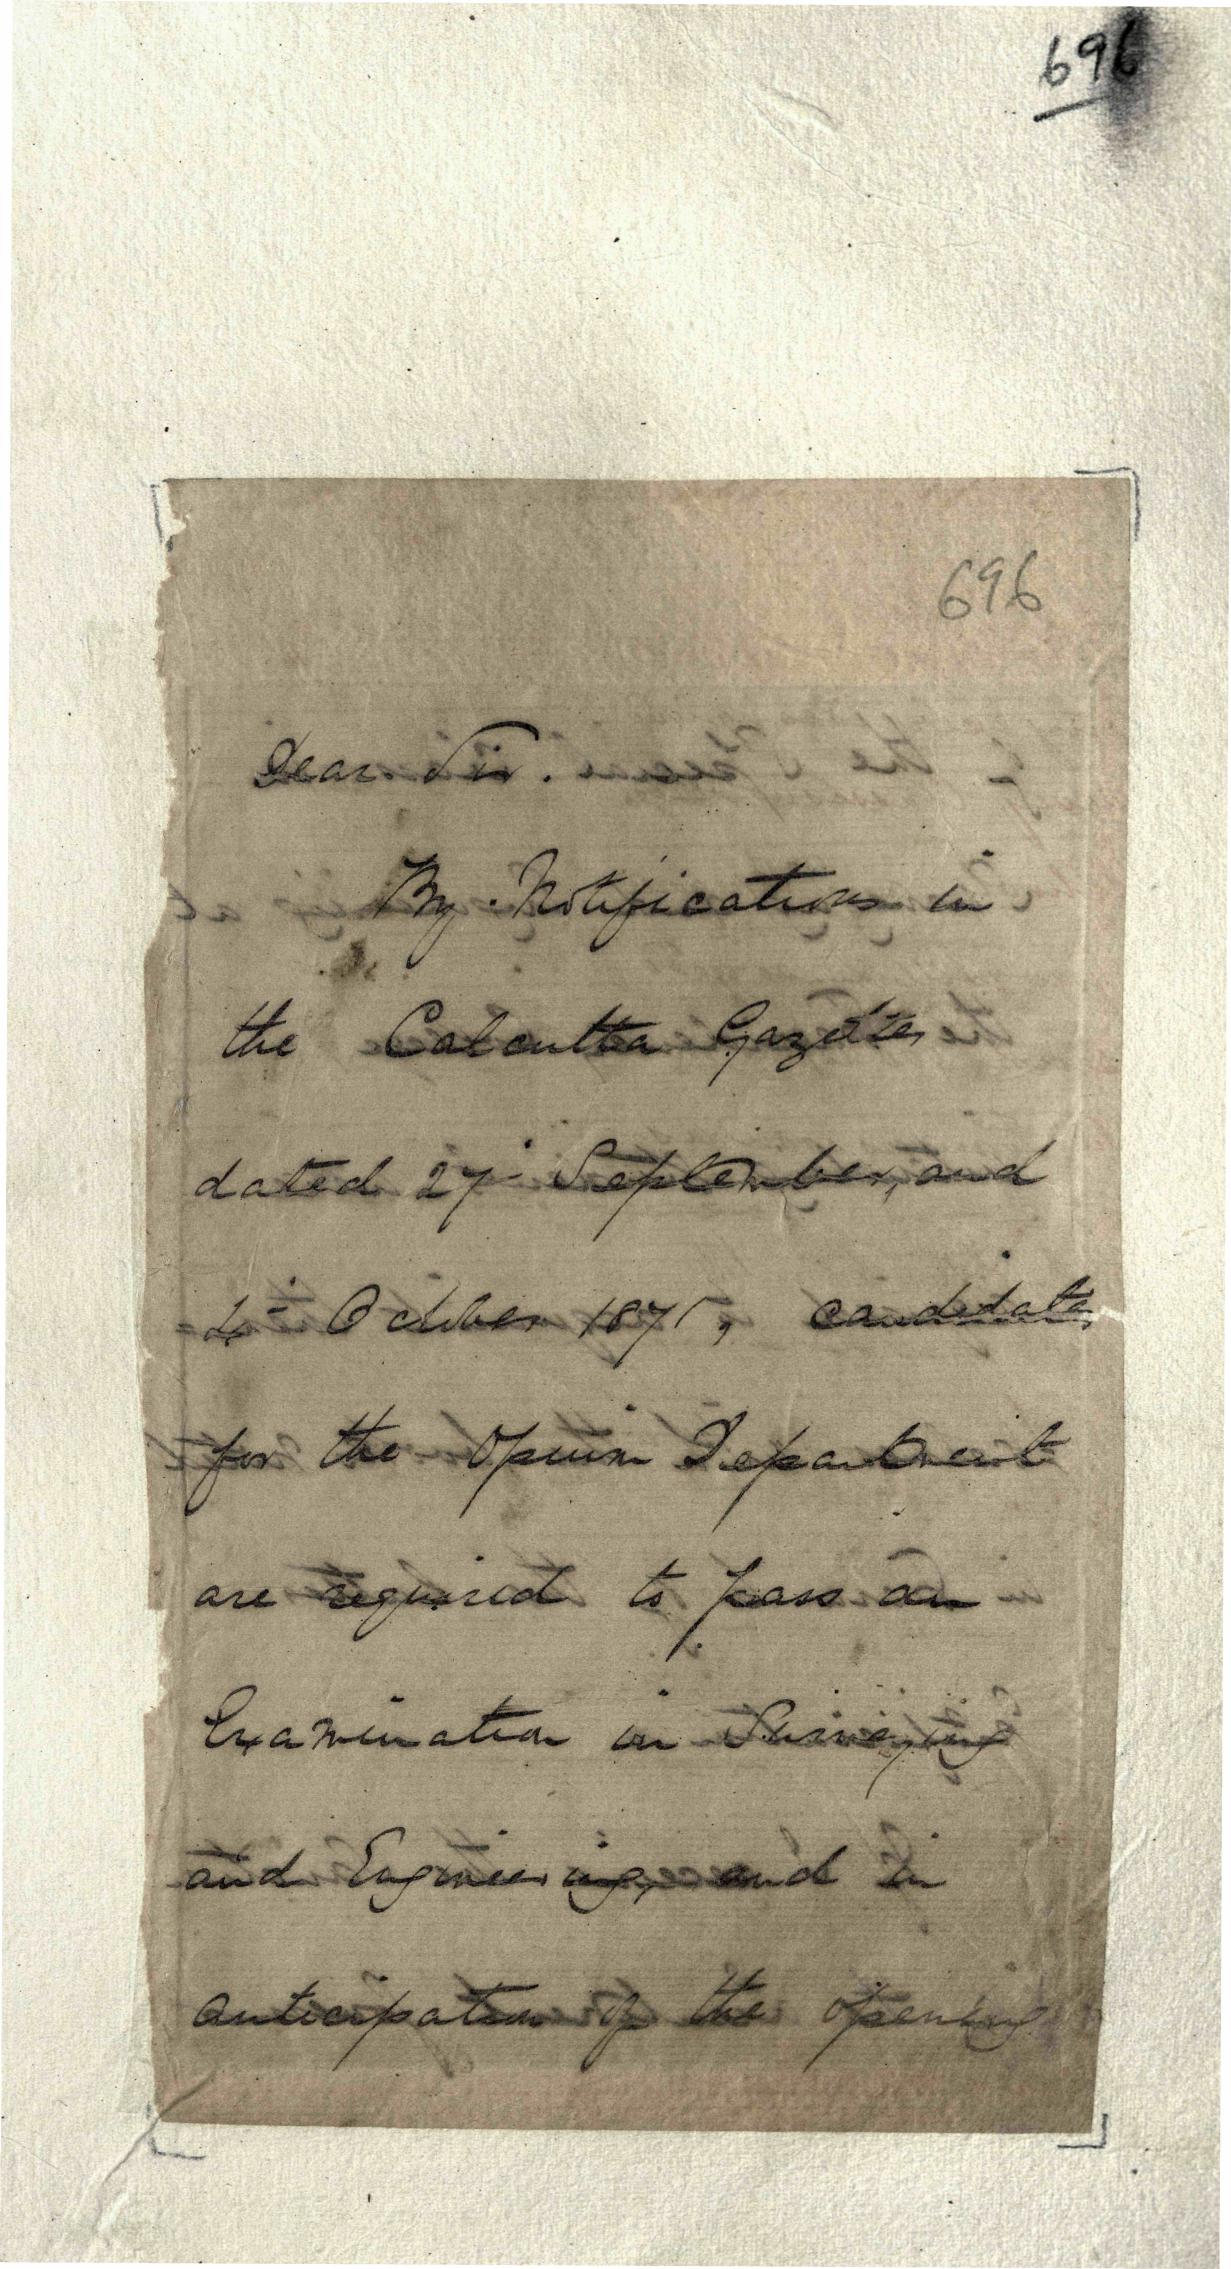 696
696
Dear Sir.
By Notifications in
the Calcutta Gazettes
dated 27th September, and
4th October 1871, candidates
for the Opium Department
are required to pass an
Examination in Surveying
and Engineering, and in
anticipation of the opening